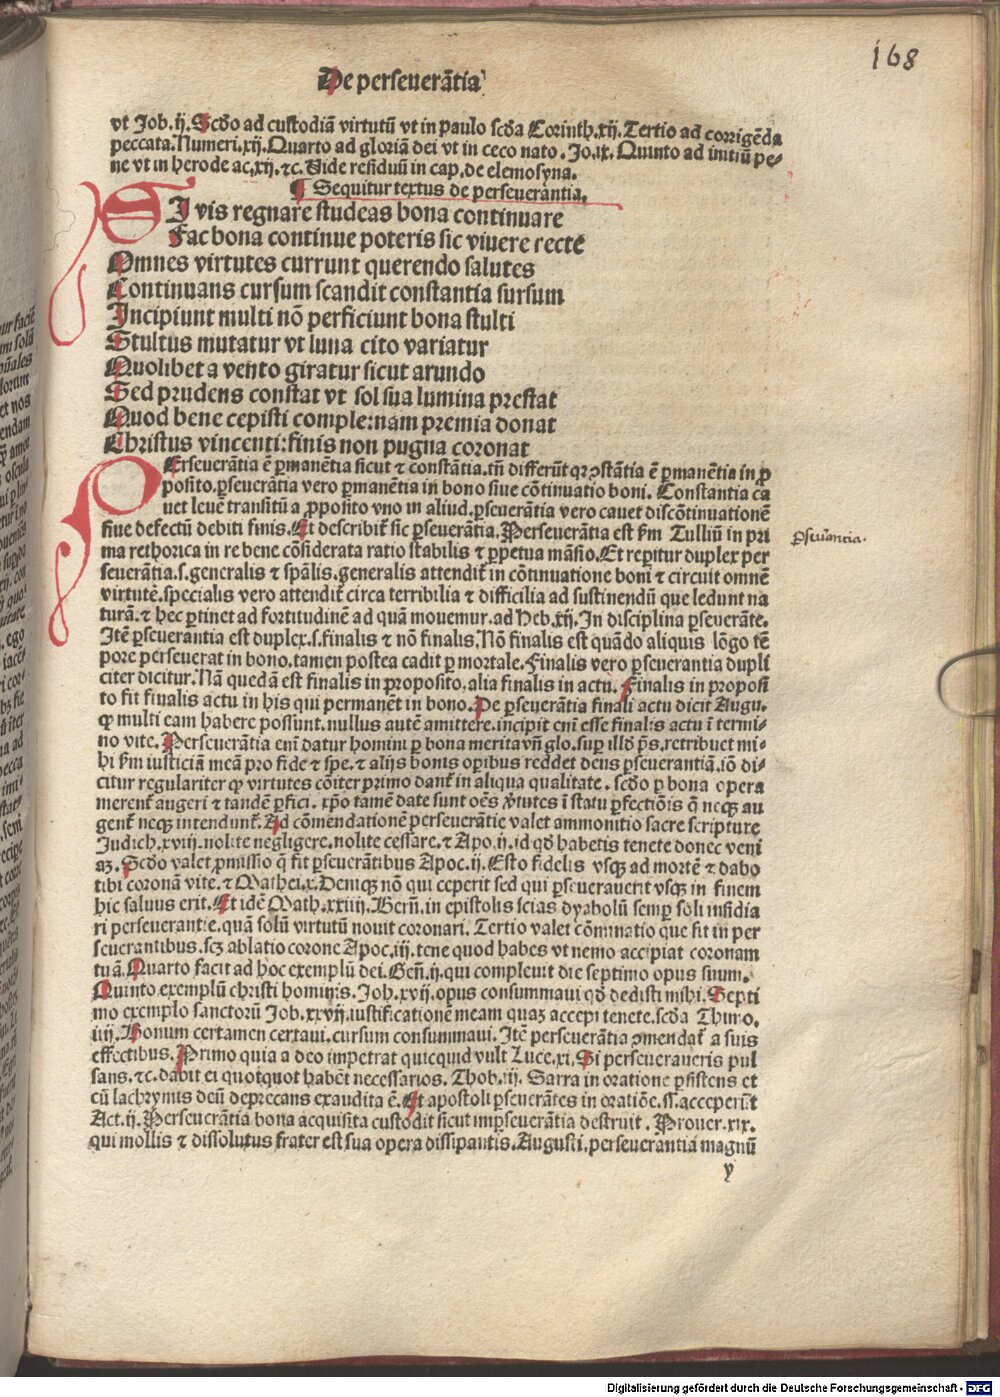 168
De perseuerātia
vt Job.ij. Scďo ad custodiā virtutū vt in paulo scďa Corinth.xij. Tertio ad corrigēda
peccata. Numeri.xij. Quarto ad gloriā dei vt in ceco nato. Jo.ix. Quinto ad initiū pe-
ne vt in herode ac.xij. ⁊c. Vide residuū in cap. de elemosyna.
¶ Sequitur textus de perseuerantia.
SI vis regnare studeas bona continuare
Fac bona continue poteris sic viuere recte
Omnes virtutes currunt querendo salutes
Continuans cursum scandit constantia sursum
Incipiunt multi nō perficiunt bona stulti
Stultus mutatur vt luna cito variatur
Quolibet a vento giratur sicut arundo
Sed prudens constat vt sol sua lumina prestat
Quod bene cepisti comple: nam premia donat
Christus vincenti: finis non pugna coronat
PErseuerātia ē ꝑmanētia sicut ⁊ constātia. tn̄ differūt qꝛ ꝯstātia ē ꝑmanētia in ꝓ
posito. ꝑseuerātia vero ꝑmanētia in bono siue cōtinuatio boni. Constantia ca
uet leuē transitū a ꝓposito vno in aliud. ꝑseuerātia vero cauet discōtinuationē
siue defectū debiti finis. Et describit̄ sic ꝑseuerātia. Perseuerātia est ẜm Tulliū in pri
ma rethorica in re bene cōsiderata ratio stabilis ⁊ ꝑpetua māsio. Et reꝑitur duplex per
seuerātia. s. generalis ⁊ spālis. generalis attendit̄ in cōtinuatione boni ⁊ circuit omnē
virtutē. specialis vero attendit̄ circa terribilia ⁊ difficilia ad sustinendū que ledunt na
turā. ⁊ hec ꝑtinet ad fortitudinē ad quā mouemur. ad Heb.xij. In disciplina ꝑseuerāte.
Itē ꝑseuerantia est duplex. s. finalis ⁊ nō finalis. Nō finalis est quādo aliquis lōgo tē
pore perseuerat in bono. tamen postea cadit ꝑ mortale. Finalis vero ꝑseuerantia dupli
citer dicitur. Nā quedā est finalis in proposito. alia finalis in actu. Finalis in proposi
to sit finalis actu in his qui permanēt in bono. De ꝑseuerātia finali actu dicit Augu.
ꝙ multi eam habere possunt. nullus autē amittere. incipit eni esse finalis actu ī termi-
no vite. Perseuerātia eni datur homini ꝑ bona merita vn̄ glo. suꝑ illď ps. retribuet mi-
hi ẜm iusticiā meā pro fide ⁊ spe. ⁊ alijs bonis oꝑibus reddet deus ꝑseuerantiā. iō di-
citur regulariter ꝙ virtutes cōiter primo dant̄ in aliqua qualitate. scďo ꝑ bona opera
merent̄ augeri ⁊ tandē ꝑfici. xp̄o tamē date sunt oēs v̓tutes ī statu ꝑfectiōis ꝙ neqꝫ au
gent̄ neqꝫ intendunt̄. Ad cōmendationē perseuerātie valet ammonitio sacre scripture
Judich.xviij. nolite negligere. nolite cessare. ⁊ Apo.ij. id qď habetis tenete donec veni
aꝫ. Scďo valet ꝓmissio q̄ fit ꝑseuerātibus Apoc.ij. Esto fidelis vsqꝫ ad mortē ⁊ dabo
tibi coronā vite. ⁊ Mathei.x. Deniqꝫ nō qui ceperit sed qui ꝑseuerauerit vsqꝫ in finem
hic saluus erit. Et idē Math.xxiiij. Bern̄. in epistolis scias dyabolū semꝑ soli insidia
ri perseuerantie. quā solū virtutū nouit coronari. Tertio valet cōminatio que fit in per
seuerantibus. scꝫ ablatio corone Apoc.iij. tene quod habes vt nemo accipiat coronam
tuā. Quarto facit ad hoc exemplū dei. Gen̄.ij. qui compleuit die septimo opus suum.
Quinto exemplū christi hominis. Joh.xvij. opus consummaui qď dedisti mihi. Septi
mo exemplo sanctorū Job.xxvij. iustificationē meam quaꝫ accepi tenete. scďa Thimo.
iiij. Bonum certamen certaui. cursum consummaui. Itē perseuerātia ꝯmendat̄ a suis
effectibus. Primo quia a deo impetrat quicquid vult Luce.xi. Si perseueraueris pul
sans. ⁊c. dabit ei quotquot habēt necessarios. Thob.iij. Sarra in oratione ꝑsistens et
cū lachrymis deū deprecans exaudita ē. Et apostoli ꝑseuerātes in oratiōe. ss. acceperūt
Act.ij. Perseuerātia bona acquisita custodit sicut imꝑseuerātia destruit. Prouer.xix.
qui mollis ⁊ dissolutus frater est sua opera dissipantis. Augusti. perseuerantia magnū
y
ꝑseuerantia.
Digitalisierung gefördert durch die Deutsche Forschungsgemeinschaft - DFG